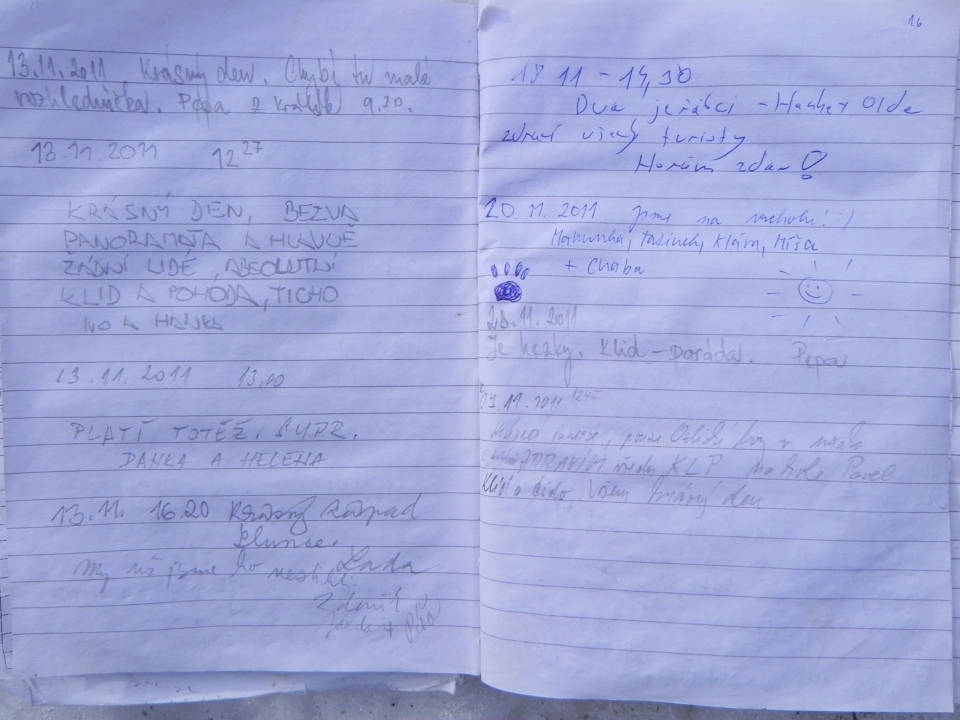 13.11.2011 Krásný den. Chybí tu malá
rozhlednička. Pepa z 9.30.
13.11.2011 12 27
KRÁSNÝ DEN, BEZVA
PANORAMATA A HLAVNĚ
ŽÁDNÍ LIDÉ, ABSOLUTNÍ
KLID A POHODA, TICHO
IVO A HANKA
13.11.2011 13,00
PLATÍ TOTÉŽ. SUPR.
DANKA A HELENA
13.11. 16.20 Krásný západ
slunce.
My už jsme ho nestihli. Lada
Zdeník
16
18 11 - 14,30
Dva jeřábci - Olda
zdraví všechy turisty
Horám zdar!
20.11.2011 jsme na vrcholu! :)
Maminka, Klára, Míša
+ Chaba
20.11.2011
je hezky. Klid - paráda. Pepa
27.11.2011
KLP Pavel
Klid a Všem krásný den